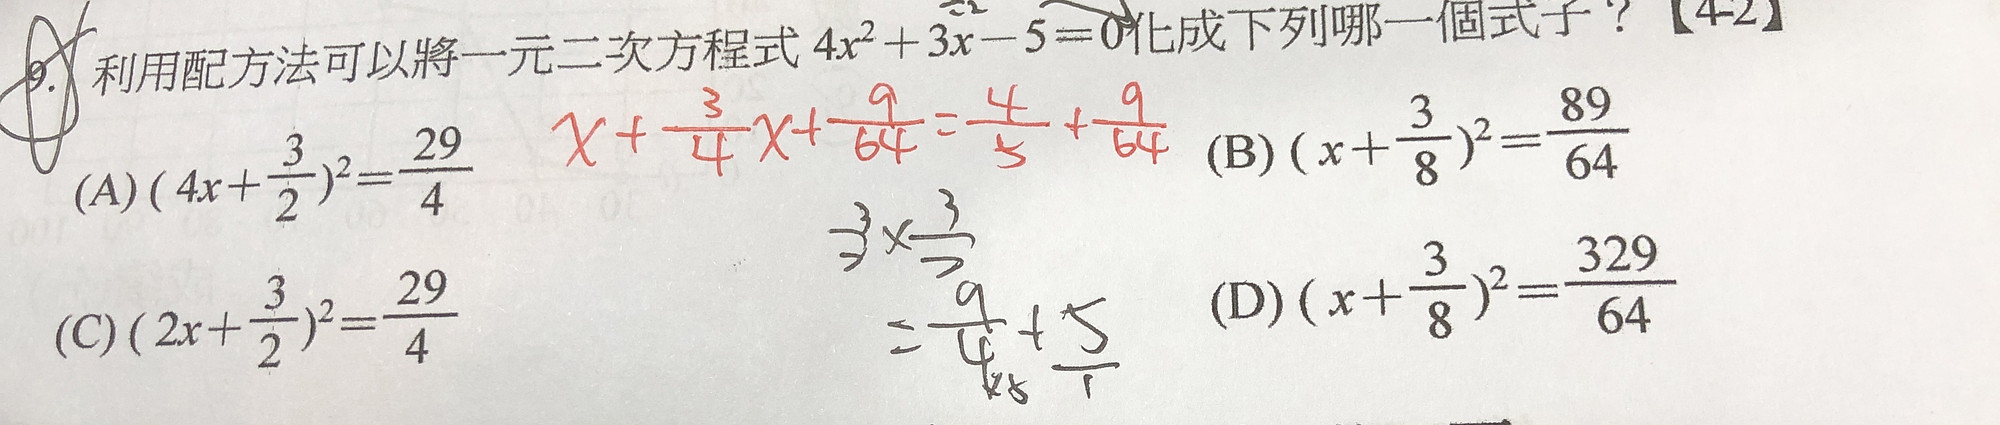 9. 利用配方法可以將一元二次方程式 4x²+3x−5=0化成下列哪一個式子？【4-2】
x + 3/4 x + 9/64 = 4/5 + 9/64
(A) ( 4x+3/2 )²=29/4
(B) ( x+3/8 )²=89/64
3/2 × 3/2
= 9/4 + 5/1
(C) ( 2x+3/2 )²=29/4
(D) ( x+3/8 )²=329/64